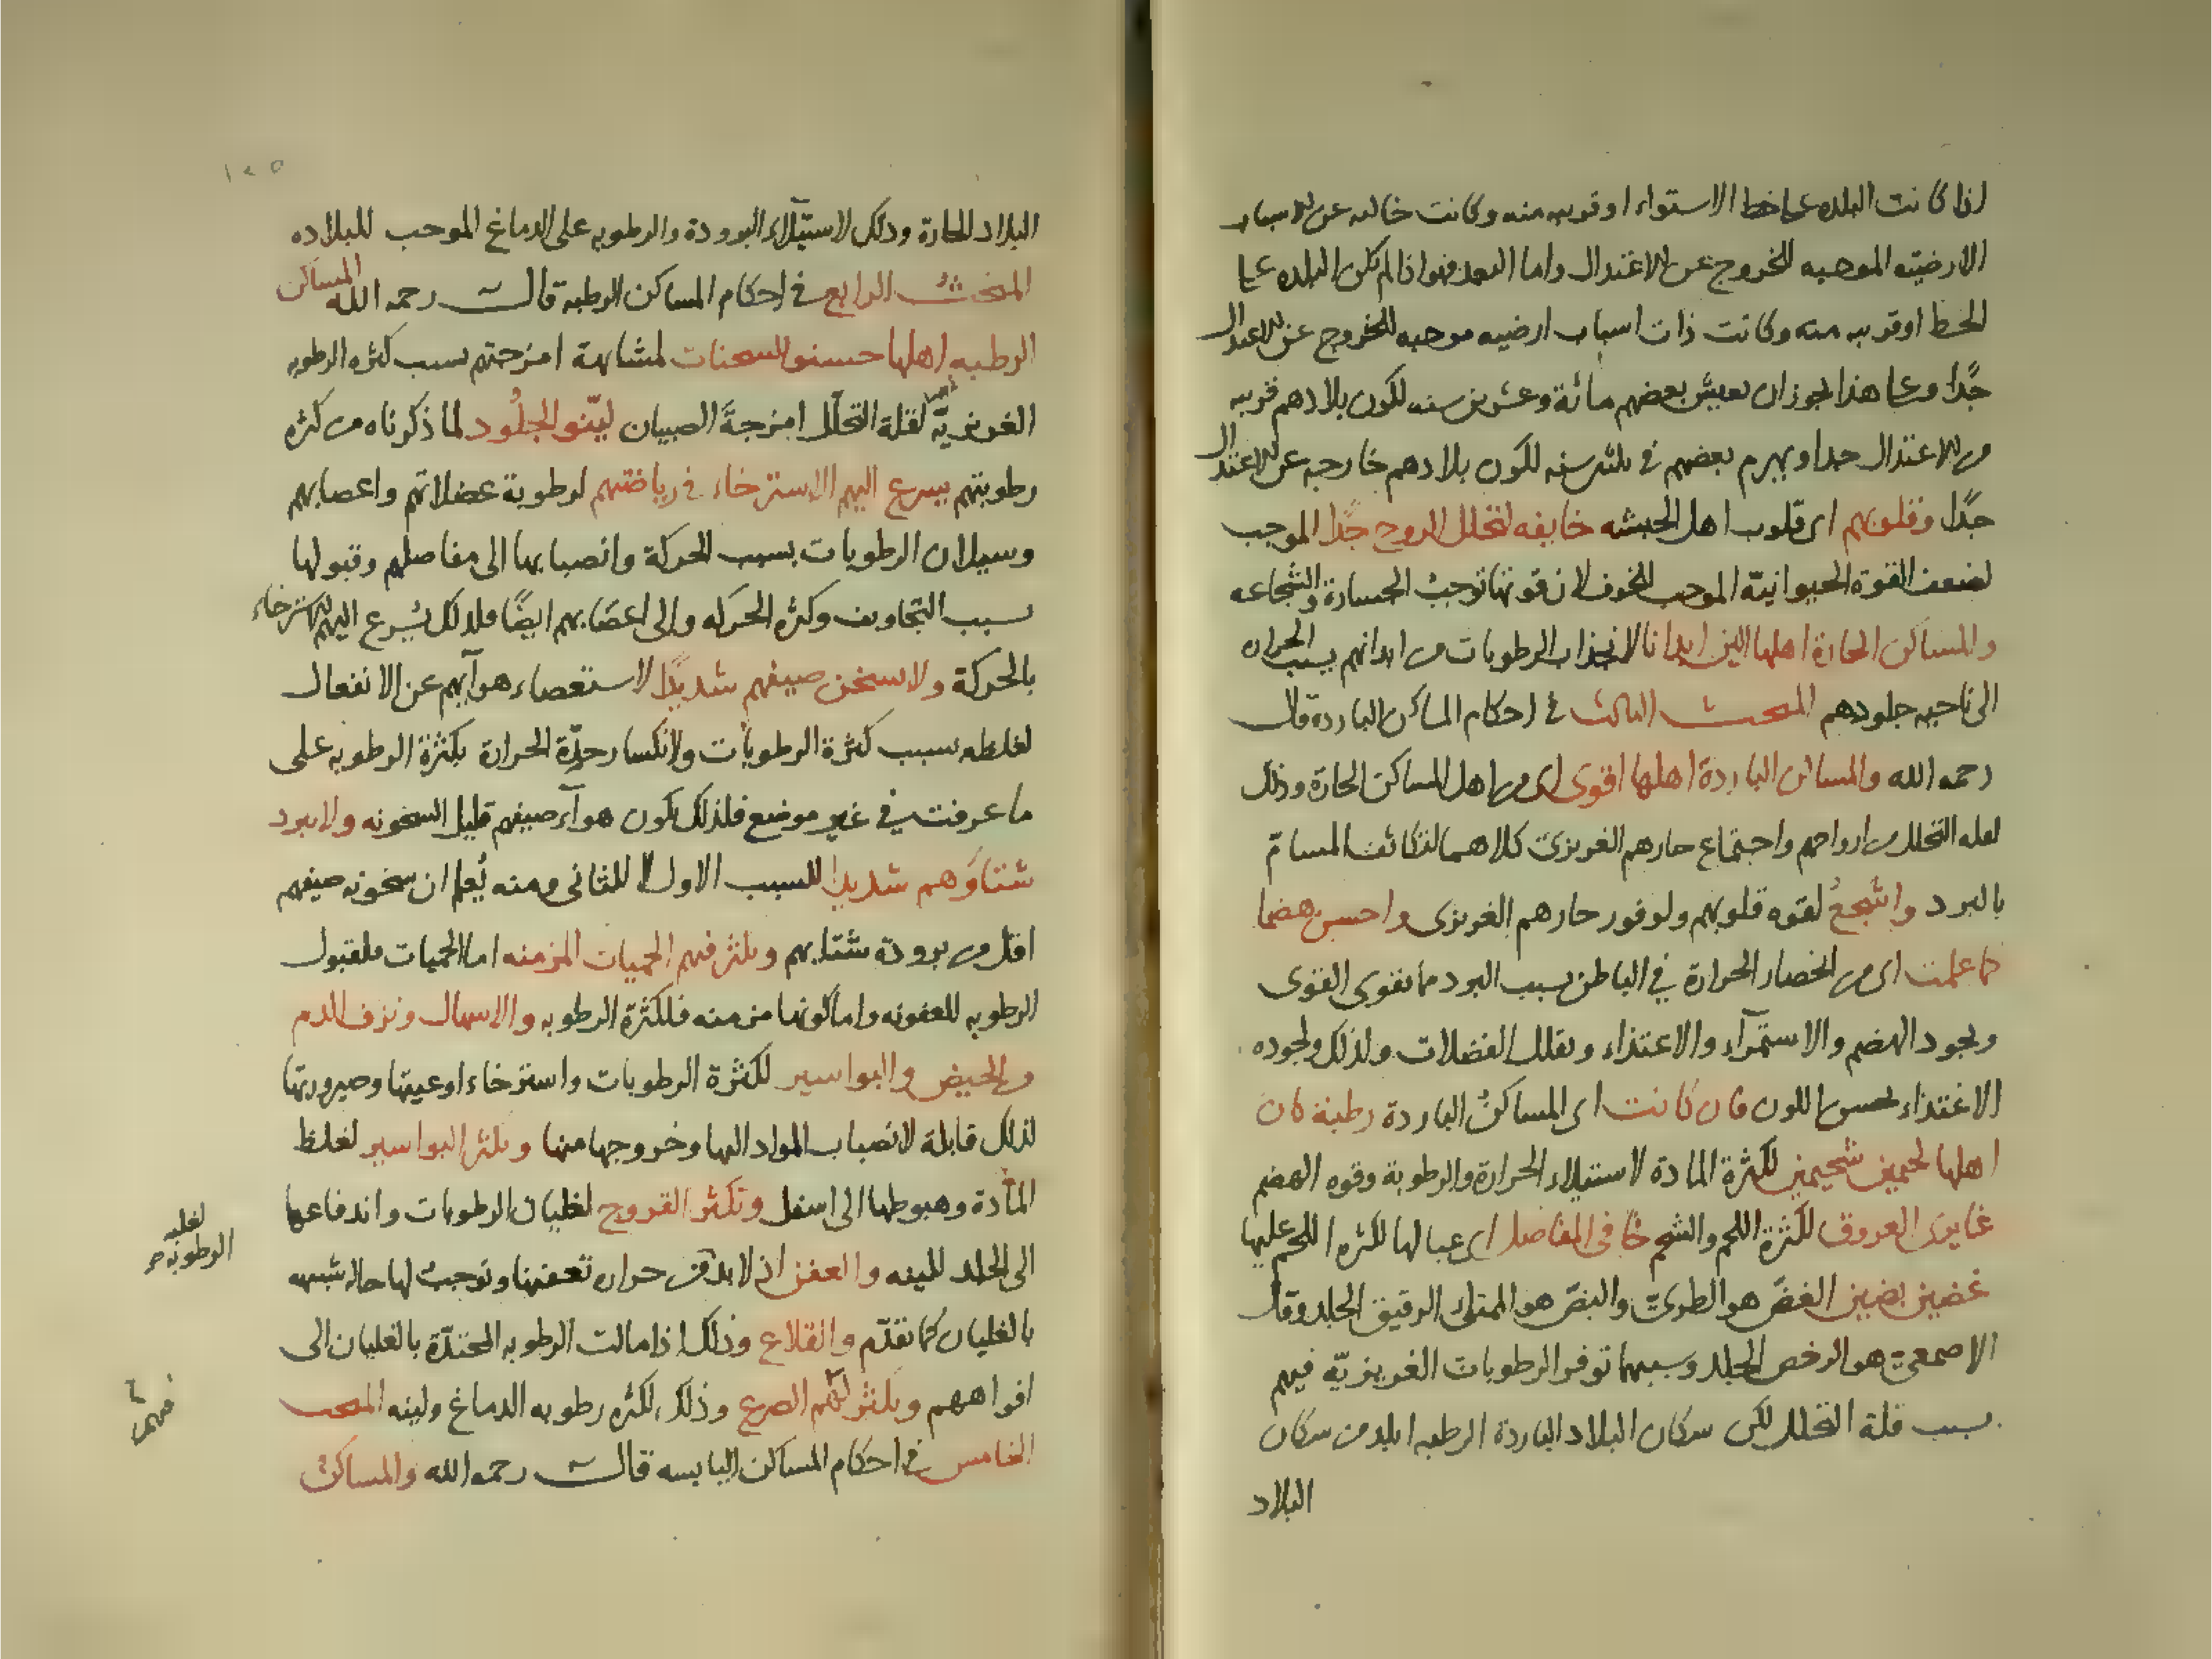 اذا كانت البلده على خط الاستواء او قريبه منه وكانت خاليه عن الاسباب
الارضيّه الموجبه للخروج عن الاعتدال واما البعد فهو اذا لم تكن البلده على
الخط او قريبه منه وكانت ذات اسباب ارضيه موجبه للخروج عن الاعتدال
جدًّا وعلى هذا يجوز ان يعيش بعضهم مائة وعشرين سنه لكون بلادهم قريبه
من الاعتدال جدا ويهرم بعضهم في ثلثين سنه لكون بلادهم خارجه عن الاعتدال
جدًّا وقلوبهم اى قلوب اهل الحبشه خايفه لتحلل الروح جدًّا الموجب
لضعف القوة الحيوانيّة الموجب للخوف لان قوتها توجب الجسارة والشجاعه
والمساكن الحارة اهلها الين ابدانا لانجذاب الرطوبات من ابدانهم بسبب الحراره
الى ناحيه جلودهم المبحث الثالث في احكام المساكن الباردة قال
رحمه الله والمساكن الباردة اهلها اقوى اى من اهل المساكن الحارة وذلك
لقله التحلل من ارواحهم واجتماع حارهم الغريزىّ كلاهما لتكاثف المسامّ
بالبرد واشجعُ لقوه قلوبهم ولوفور حارهم الغريزى واحسن هضما
كما علمت اى من انحصار الحرارة في الباطن بسبب البرد مما يقوى القوى
ويجود الهضم والاستمرآء والاغتذاء ويقلل الفضلات ولذلك ولجوده
الاغتذاء يحسن اللون فان كانت اى المساكنُ الباردة رطبة كان
اهلها لحيمين شحيمين لكثرة المادة لاستيلاء الحرارة والرطوبة وقوه الهضم
غايرى العروق لكثرة اللحم والشحم جافى المفاصل اى عبالها لكثره اللحم عليها
غضين بضين الغضّ هو الطرىّ والبضّ هو الممتلى الرقيق الجلد وقال
الاصمعىّ هو الرخص الجلد وسببهما توفر الرطوبات الغريزيّه فيهم
بسبب قلة التحلل لكن سكان البلاد الباردة الرطبه ابلد من سكان
البلاد
١٢٥
البلاد الحارة وذلك لاستيلآء البرودة والرطوبه على الدماغ الموجب للبلاده
المبحث الرابع في احكام المساكن الرطبه قال رحمه الله المساكن
الرطبه اهلها حسنو السحنات لمشابهة امزجتهم بسبب كثره الرطوبه
الغريزيّة لقلة التحلّل امزجةَ الصبيان ليّنو الجلُود لما ذكرناه من كثره
رطوبتهم يسرع اليهم الاسترخاء في رياضتهم لرطوبة عضلاتهم واعصابهم
وسيلان الرطوبات بسبب الحركة وانصبابها الى مفاصلهم وقبولها
بسبب التجاويف وكثره الحركه والى اعصابهم ايضًا فلذلك يُسرع اليهم الاسترخاء
بالحركة ولا يسخن صيفهم شديدًا لاستعصاء هوآيهم عن الانفعال
لغلظه بسبب كثرة الرطوبات ولانكسار حدّة الحرارة بكثرة الرطوبه على
ما عرفت في غير موضع فلذلك يكون هوآء صيفهم قليل السخونه ولا يبرد
شتاؤهم شديدا للسبب الاول لا للثانى ومنه يُعلم ان سخونه صيفهم
اقل من برودة شتايهم ويكثر فيهم الحميات المزمنه اما الحميات فلقبول
الرطوبه للعفونه واما كونها مزمنه فلكثرة الرطوبه والاسهال ونزف الدم
والحيض والبواسير لكثرة الرطوبات واسترخاء اوعيتها وصيرورتها
لذلك قابلة لانصباب المواد اليها وخروجها منها ويكثر البواسير لغلظ
المادة وهبوطها الى اسفل وتكثر القروح لغليان الرطوبات واندفاعها
الى الجلد للينه والعفن اذ لا بد من حراره تعفنها وتوجبُ لها حاله شبيهه
بالغليان كما تقدّم والقلاع وذلك اذا مالت الرطوبه المحتدّة بالغليان الى
افواههم ويكثر لهم الصرع وذلك لكثره رطوبه الدماغ ولينه المبحث
الخامس في احكام المساكن اليابسه قال رحمه الله والمساكن
لغلبه
الرطوبه